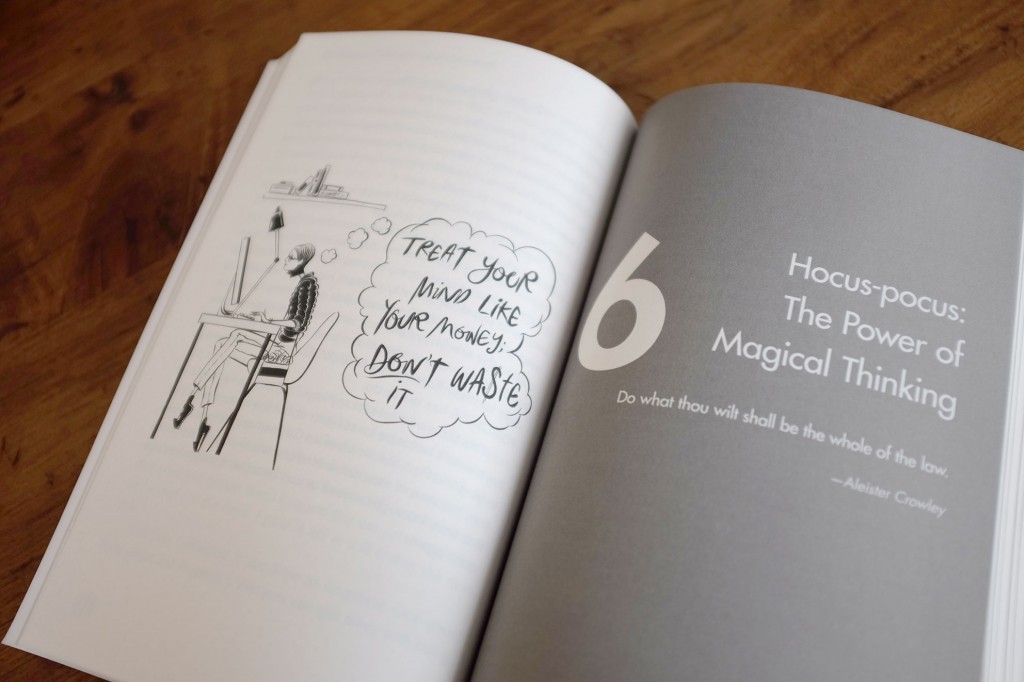 TREAT YOUR
MIND LIKE
YOUR MONEY;
DON'T WASTE
IT
6
Hocus-pocus:
The Power of
Magical Thinking
Do what thou wilt shall be the whole of the law.
—Aleister Crowley